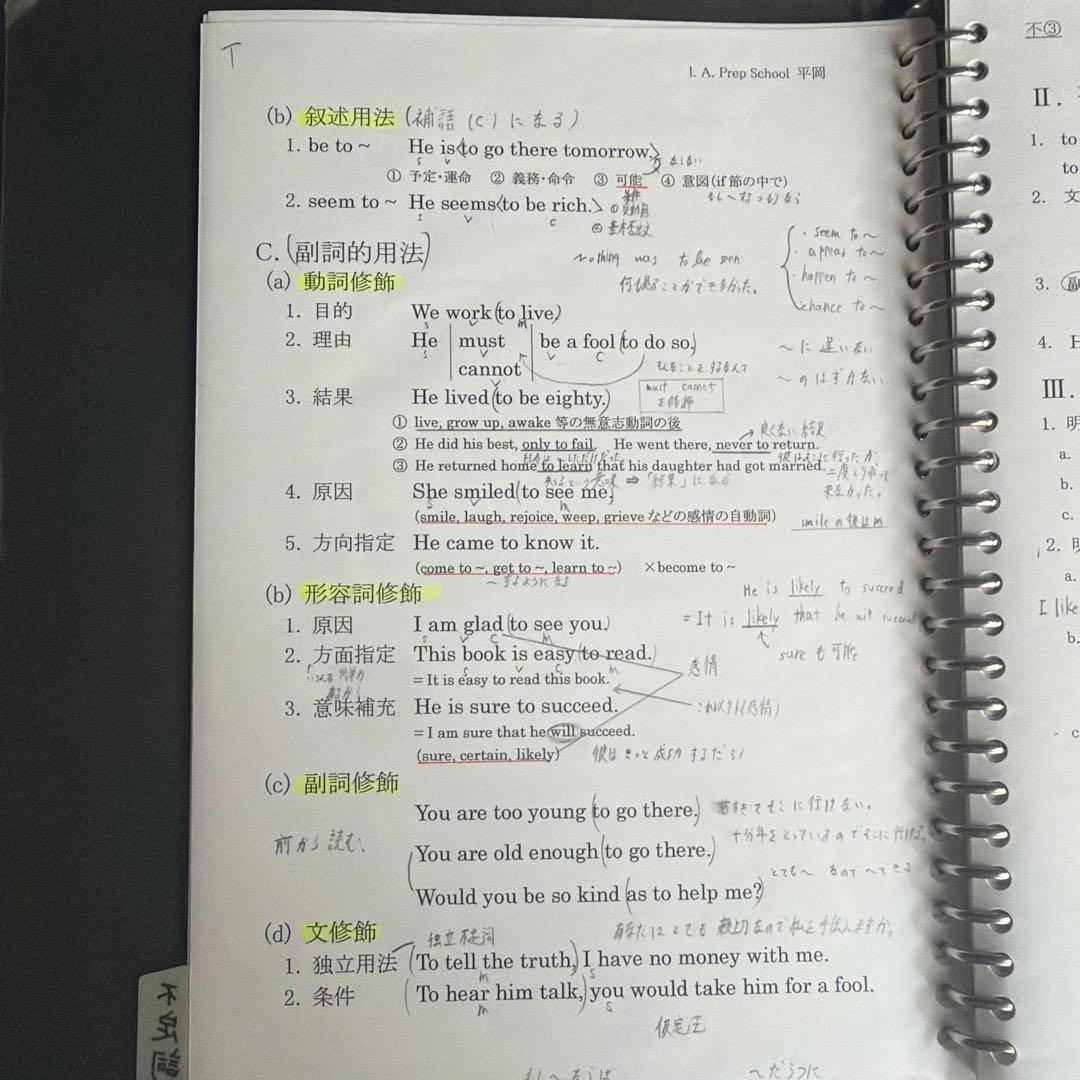 T
I. A. Prep School 平岡
(b) 叙述用法 (補語 (C) になる)
1. be to ~ He is to go there tomorrow.
S V
① 予定・運命 ② 義務・命令 ③ 可能 ④ 意図 (if 節の中で)
2. seem to ~ He seems to be rich.
S V C
の受動態
の基本否定文
Nothing was to be seen
何も見ることができなかった。
・seem to ~
・appear to ~
・happen to ~
・chance to ~
C. (副詞的用法)
(a) 動詞修飾
1. 目的 We work (to live)
S V m
2. 理由 He must be a fool (to do so.)
cannot
S V V C
~に違いない
~のはずがない
must cannot
3. 結果 He lived (to be eighty.)
① live, grow up, awake 等の無意志動詞の後
良くない結果
② He did his best, only to fail. He went there, never to return.
③ He returned home to learn that his daughter had got married.
⇒「結果」になる
来なかった。
4. 原因 She smiled (to see me,
S V m
(smile, laugh, rejoice, weep, grieve などの感情の自動詞)
smile の後は m
5. 方向指定 He came to know it.
(come to ~, get to ~, learn to ~) ×become to ~
~するようになる
(b) 形容詞修飾
He is likely to succeed
= It is likely that he will succeed
sure も可能
1. 原因 I am glad (to see you.)
S V C m
2. 方面指定 This book is easy (to read.)
S V C m
= It is easy to read this book.
感情
これ以外(感情)
3. 意味補充 He is sure to succeed.
= I am sure that he will succeed.
(sure, certain, likely) 彼はきっと成功するだろう
(c) 副詞修飾
You are too young (to go there.) 若すぎてそこに行けない。
十分年をとっているのでそこに行ける。
前から読む、
You are old enough (to go there.)
とても~なので~できる
Would you be so kind (as to help me?)
あなたはとても親切なので私を手伝えますか。
(d) 文修飾
独立不定詞
1. 独立用法 (To tell the truth,) I have no money with me.
m S
2. 条件 (To hear him talk,) you would take him for a fool.
m S
仮定法
もし~ならば ~だろうに
不定詞
不③
II.
1. to
to
2. 文
3. 副
4. H
III.
1. 明
a.
b.
c.
2. 明
a.
I like
b.
c